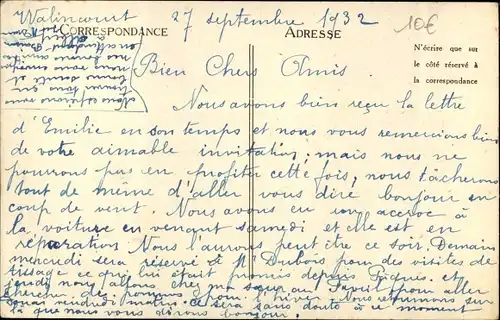 Walincourt 27 septembre 1932
10€
CORRESPONDANCE
ADRESSE
N'écrire que sur
le côté réservé à
la correspondance
Bien Chers Amis.
Nous avons bien reçu la lettre
d'Emilie en son temps et nous vous remercions bien
de votre aimable invitation; mais nous ne
pourrons pas en profiter cette fois, nous tâcherons
tout de même d'aller vous dire bonjour en
coup de vent. Nous avons eu un accroc à
la voiture en venant samedi et elle est en
réparation. Nous l'aurons peut être ce soir. Demain
mercredi sera réservé à Mr Dubois pour des visites de
tissage ce qui lui était promis depuis Pâques. et
jeudi nous allons chez ma sœur au pour aller
chercher des pommes pour l'hiver. Nous retournons sur
vendredi matin. ce sera sans doute à ce moment
là que nous vous dirons bonjour.
Nous espérons vous
trouver tous en
bonne santé et
nous vous